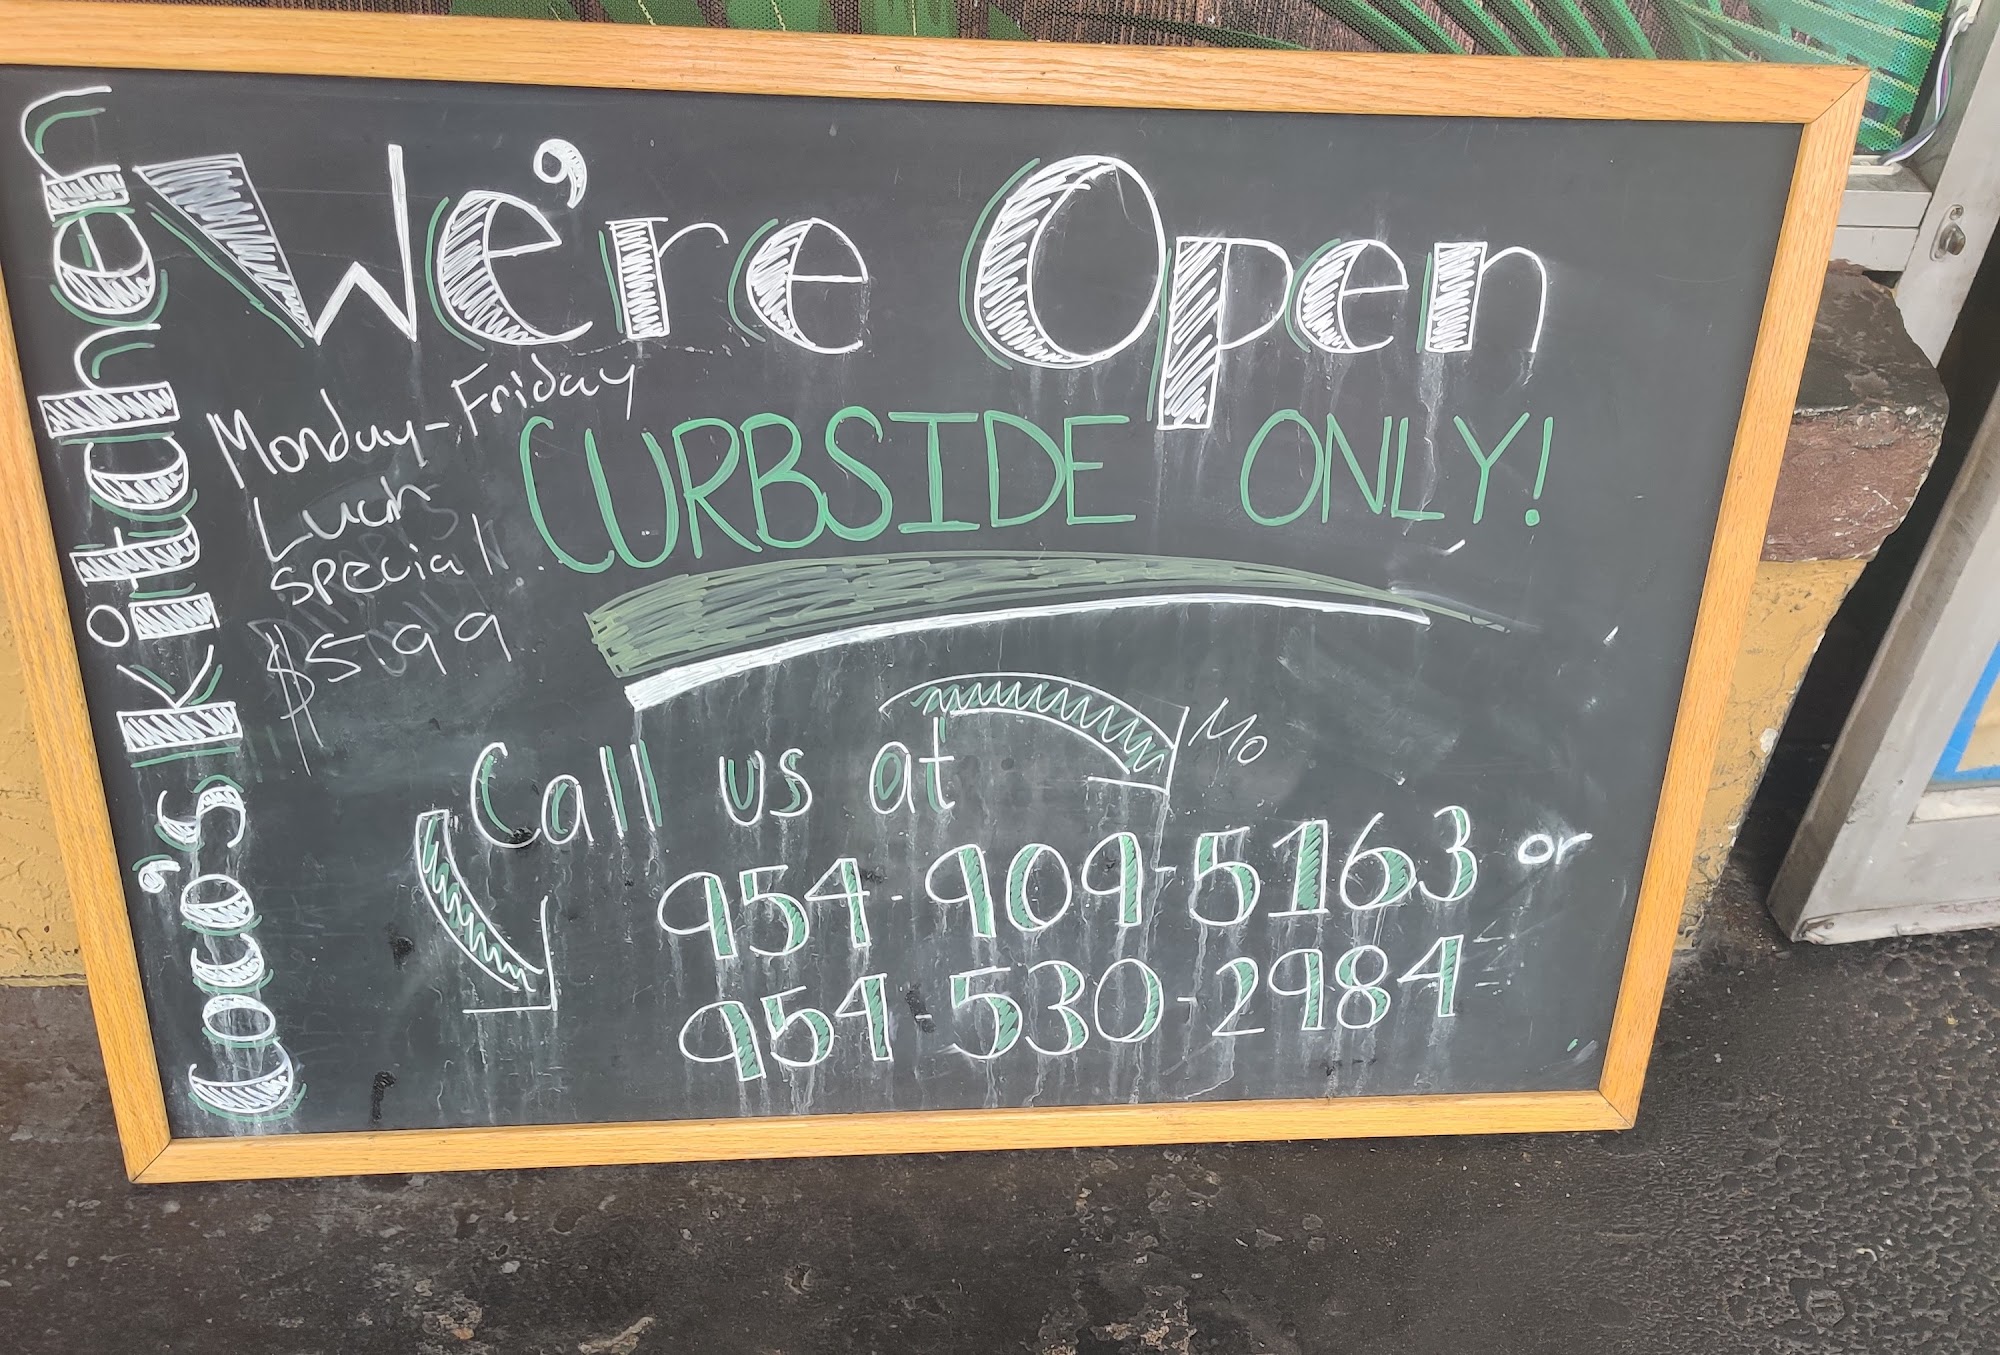 Coco's Kitchen
We're Open
Monday-Friday
Luch
special
$5.99
CURBSIDE ONLY!
Mo
Call us at
954-909-5163 or
954-530-2984